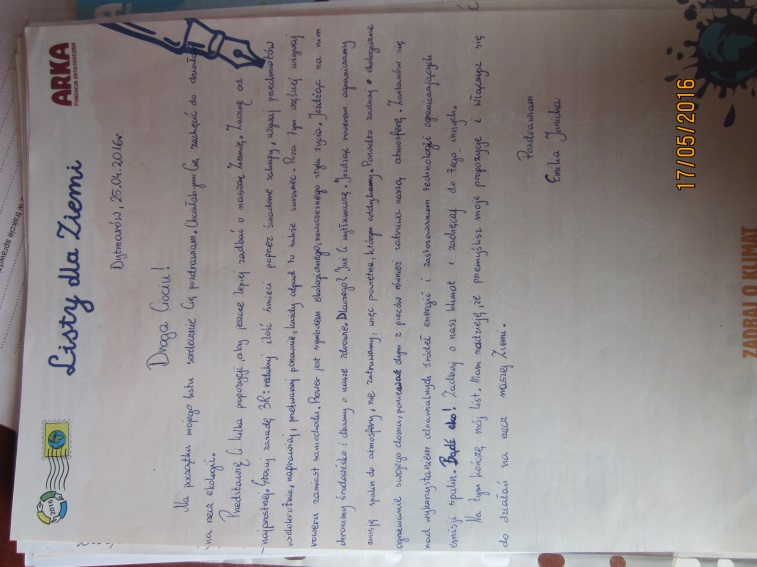 2016
Listy dla Ziemi
ARKA
FUNDACJA EKOLOGICZNA
Dytmarów, 25.04.2016r
Droga Ciociu!
Na początku mojego listu serdecznie Cię pozdrawiam. Chciałabym Cię zachęcić do działań
na rzecz ekologii.
Przedstawię Ci kilka propozycji, aby jeszcze lepiej zadbać o naszą Ziemię. Zacznę od
najprostszej. Stosuj zasadę 3R: redukuj ilość śmieci poprzez świadome zakupy, używaj przedmiotów
wielokrotnie, naprawiaj, przetwarzaj ponownie, każdy odpad to także surowiec. Poza tym częściej używaj
roweru zamiast samochodu. Rower jest symbolem ekologicznego, nowoczesnego stylu życia. Jeżdżąc na nim
chronimy środowisko i dbamy o nasze zdrowie. Dlaczego? Już Ci wytłumaczę. Jeżdżąc rowerem ograniczamy
emisję spalin do atmosfery, nie zatruwamy, więc powietrza, którym oddychamy. Ponadto zadbaj o ekologiczne
ogrzewanie swojego domu, ponieważ dym z pieców również zatruwa naszą atmosferę. Zastanów się
nad wykorzystaniem odnawialnych źródeł energii i zastosowaniem technologii ograniczających
emisji spalin. Bądź eko! Zadbaj o nasz klimat i zachęcaj do tego innych.
Na tym kończę mój list. Mam nadzieję, że przemyślisz moje propozycje i włączysz się
do działań na rzecz naszej Ziemi.
Pozdrawiam
Emilia
17/05/2016
ZADBAJ O KLIMAT